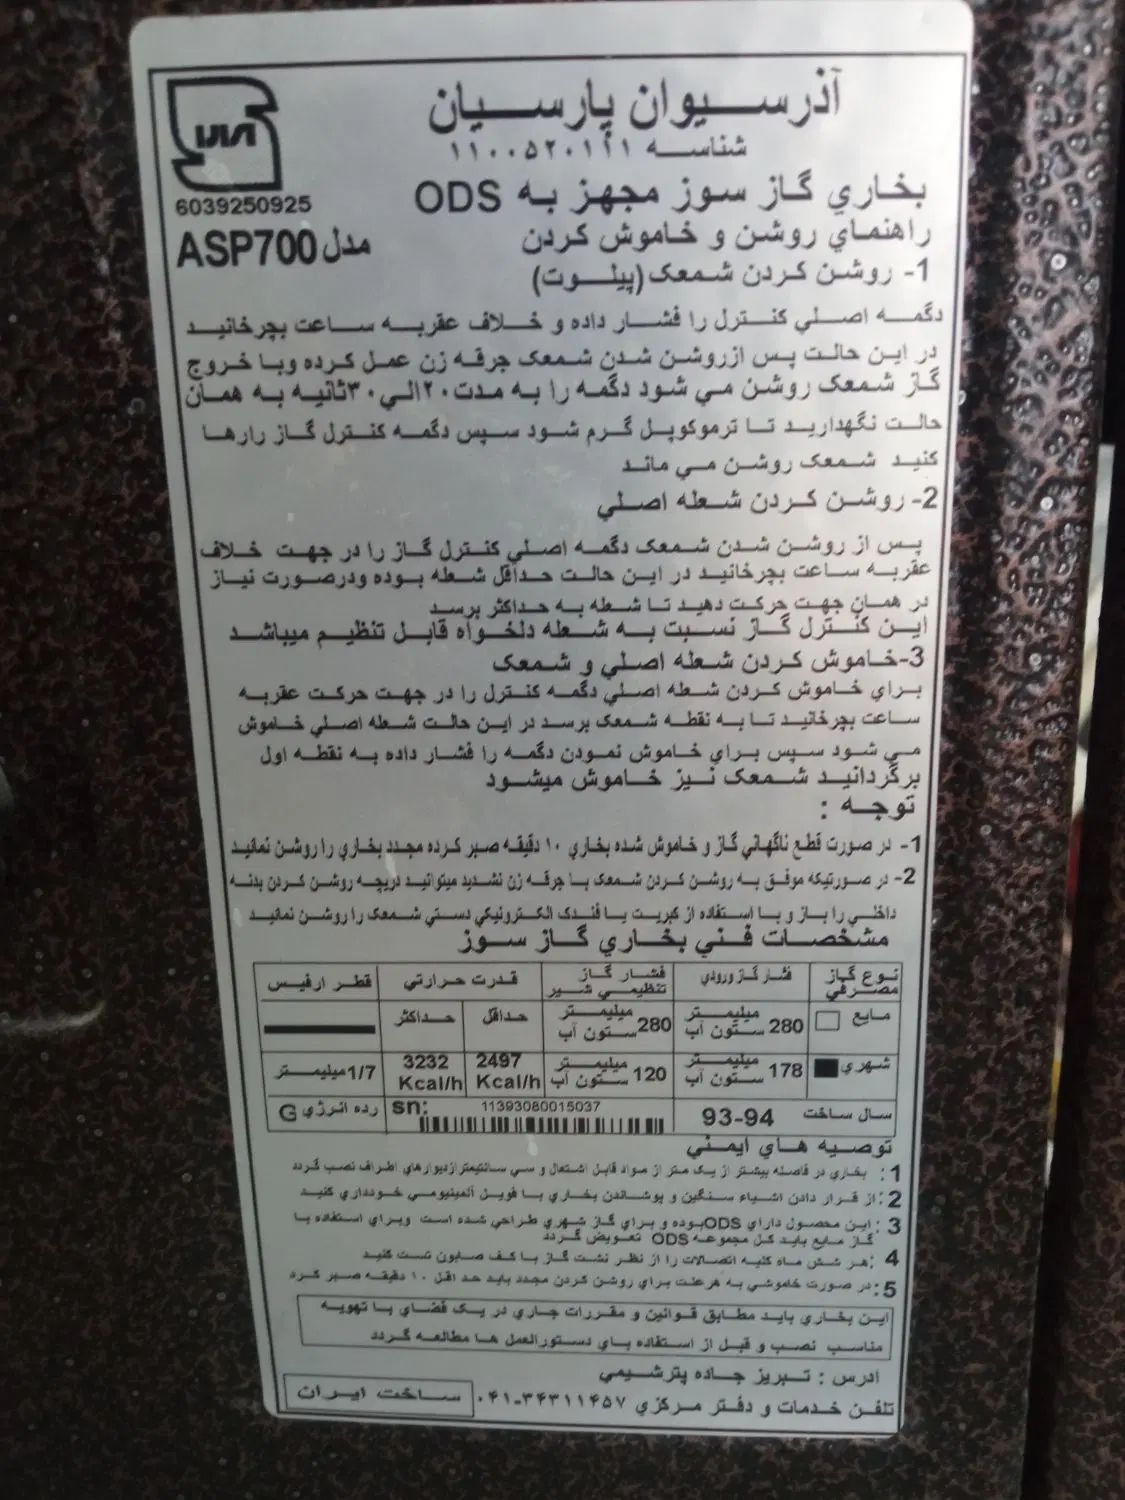 آذر سیوان پارسیان
شناسه ۱۱۰۰۵۲۰۱۱۱
6039250925
بخاري گاز سوز مجهز به ODS
راهنماي روشن و خاموش کردن
مدل ASP700
1- روشن کردن شمعک (پیلوت)
دگمه اصلي کنترل را فشار داده و خلاف عقربه ساعت بچرخانید
در این حالت پس ازروشن شدن شمعک جرقه زن عمل کرده وبا خروج
گاز شمعک روشن مي شود دگمه را به مدت ۲۰الي۳۰ثانیه به همان
حالت نگهدارید تا ترموکوپل گرم شود سپس دگمه کنترل گاز رارها
کنید شمعک روشن مي ماند
2- روشن کردن شعله اصلي
پس از روشن شدن شمعک دگمه اصلي کنترل گاز را در جهت خلاف
عقربه ساعت بچرخانید در این حالت حداقل شعله بوده ودرصورت نیاز
در همان جهت حرکت دهید تا شعله به حداکثر برسد
این کنترل گاز نسبت به شعله دلخواه قابل تنظیم میباشد
3-خاموش کردن شعله اصلي و شمعک
براي خاموش کردن شعله اصلي دگمه کنترل را در جهت حرکت عقربه
ساعت بچرخانید تا به نقطه شمعک برسد در این حالت شعله اصلي خاموش
مي شود سپس براي خاموش نمودن دگمه را فشار داده به نقطه اول
برگردانید شمعک نیز خاموش میشود
توجه :
1- در صورت قطع ناگهاني گاز و خاموش شده بخاري ۱۰ دقیقه صبر کرده مجدد بخاري را روشن نمائید
2- در صورتیکه موفق به روشن کردن شمعک با جرقه زن نشدید میتوانید دریچه روشن کردن بدنه
داخلي را باز و با استفاده از کبریت یا فندک الکترونیکي دستي شمعک را روشن نمائید
مشخصات فني بخاري گاز سوز
نوع گاز مصرفي فشار گاز ورودي فشار گاز تنظیمي شیر قدرت حرارتي قطر ارفیس
مایع 280 میلیمتر ستون آب 280 میلیمتر ستون آب حداقل حداکثر
شهري 178 میلیمتر ستون آب 120 میلیمتر ستون آب 2497 Kcal/h 3232 Kcal/h 1/7 میلیمتر
سال ساخت 93-94 sn: 11393080015037 رده انرژي G
توصیه هاي ایمني
1: بخاري در فاصله بیشتر از یک متر از مواد قابل اشتعال و سي سانتیمترازدیوارهاي اطراف نصب گردد
2: از قرار دادن اشیاء سنگین و پوشاندن بخاري با فویل آلمینیومي خودداري کنید
3: این محصول داراي ODSبوده و براي گاز شهري طراحي شده است وبراي استفاده با
گاز مایع باید کل مجموعه ODS تعویض گردد
4: هر شش ماه کلیه اتصالات را از نظر نشت گاز با کف صابون تست کنید
5: در صورت خاموشي به هرعلت براي روشن کردن مجدد باید حد اقل ۱۰ دقیقه صبر کرد
این بخاري باید مطابق قوانین و مقررات جاري در یک فضاي با تهویه
مناسب نصب و قبل از استفاده باي دستورالعمل ها مطالعه گردد
آدرس : تبریز جاده پترشیمي
تلفن خدمات و دفتر مرکزي ۰۴۱-۳۴۳۱۱۴۵۷
ساخت ایران